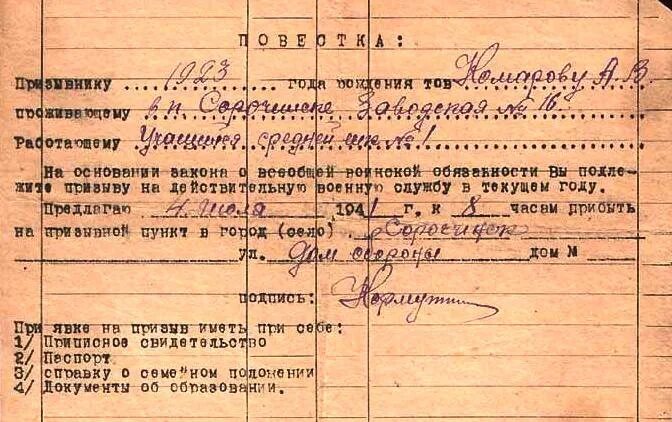 ПОВЕСТКА:
Призывнику 1923 года рождения тов Комарову А.В.
проживающему в п. Сорочинске Заводская № 16
Работающему Учащийся средней шк. № 1
На основании закона о всеобщей воинской обязанности Вы подле-
жите призыву на действительную военную службу в текущем году.
Предлагаю 4 июля 1941 г. к 8 часам прибыть
на призывной пункт в город (село) Сорочинск
ул. Дом обороны дом №
подпись:
При явке на призыв иметь при себе:
1/ Приписное свидетельство
2/ Паспорт
3/ справку о семейном положении
4/ Документы об образовании.